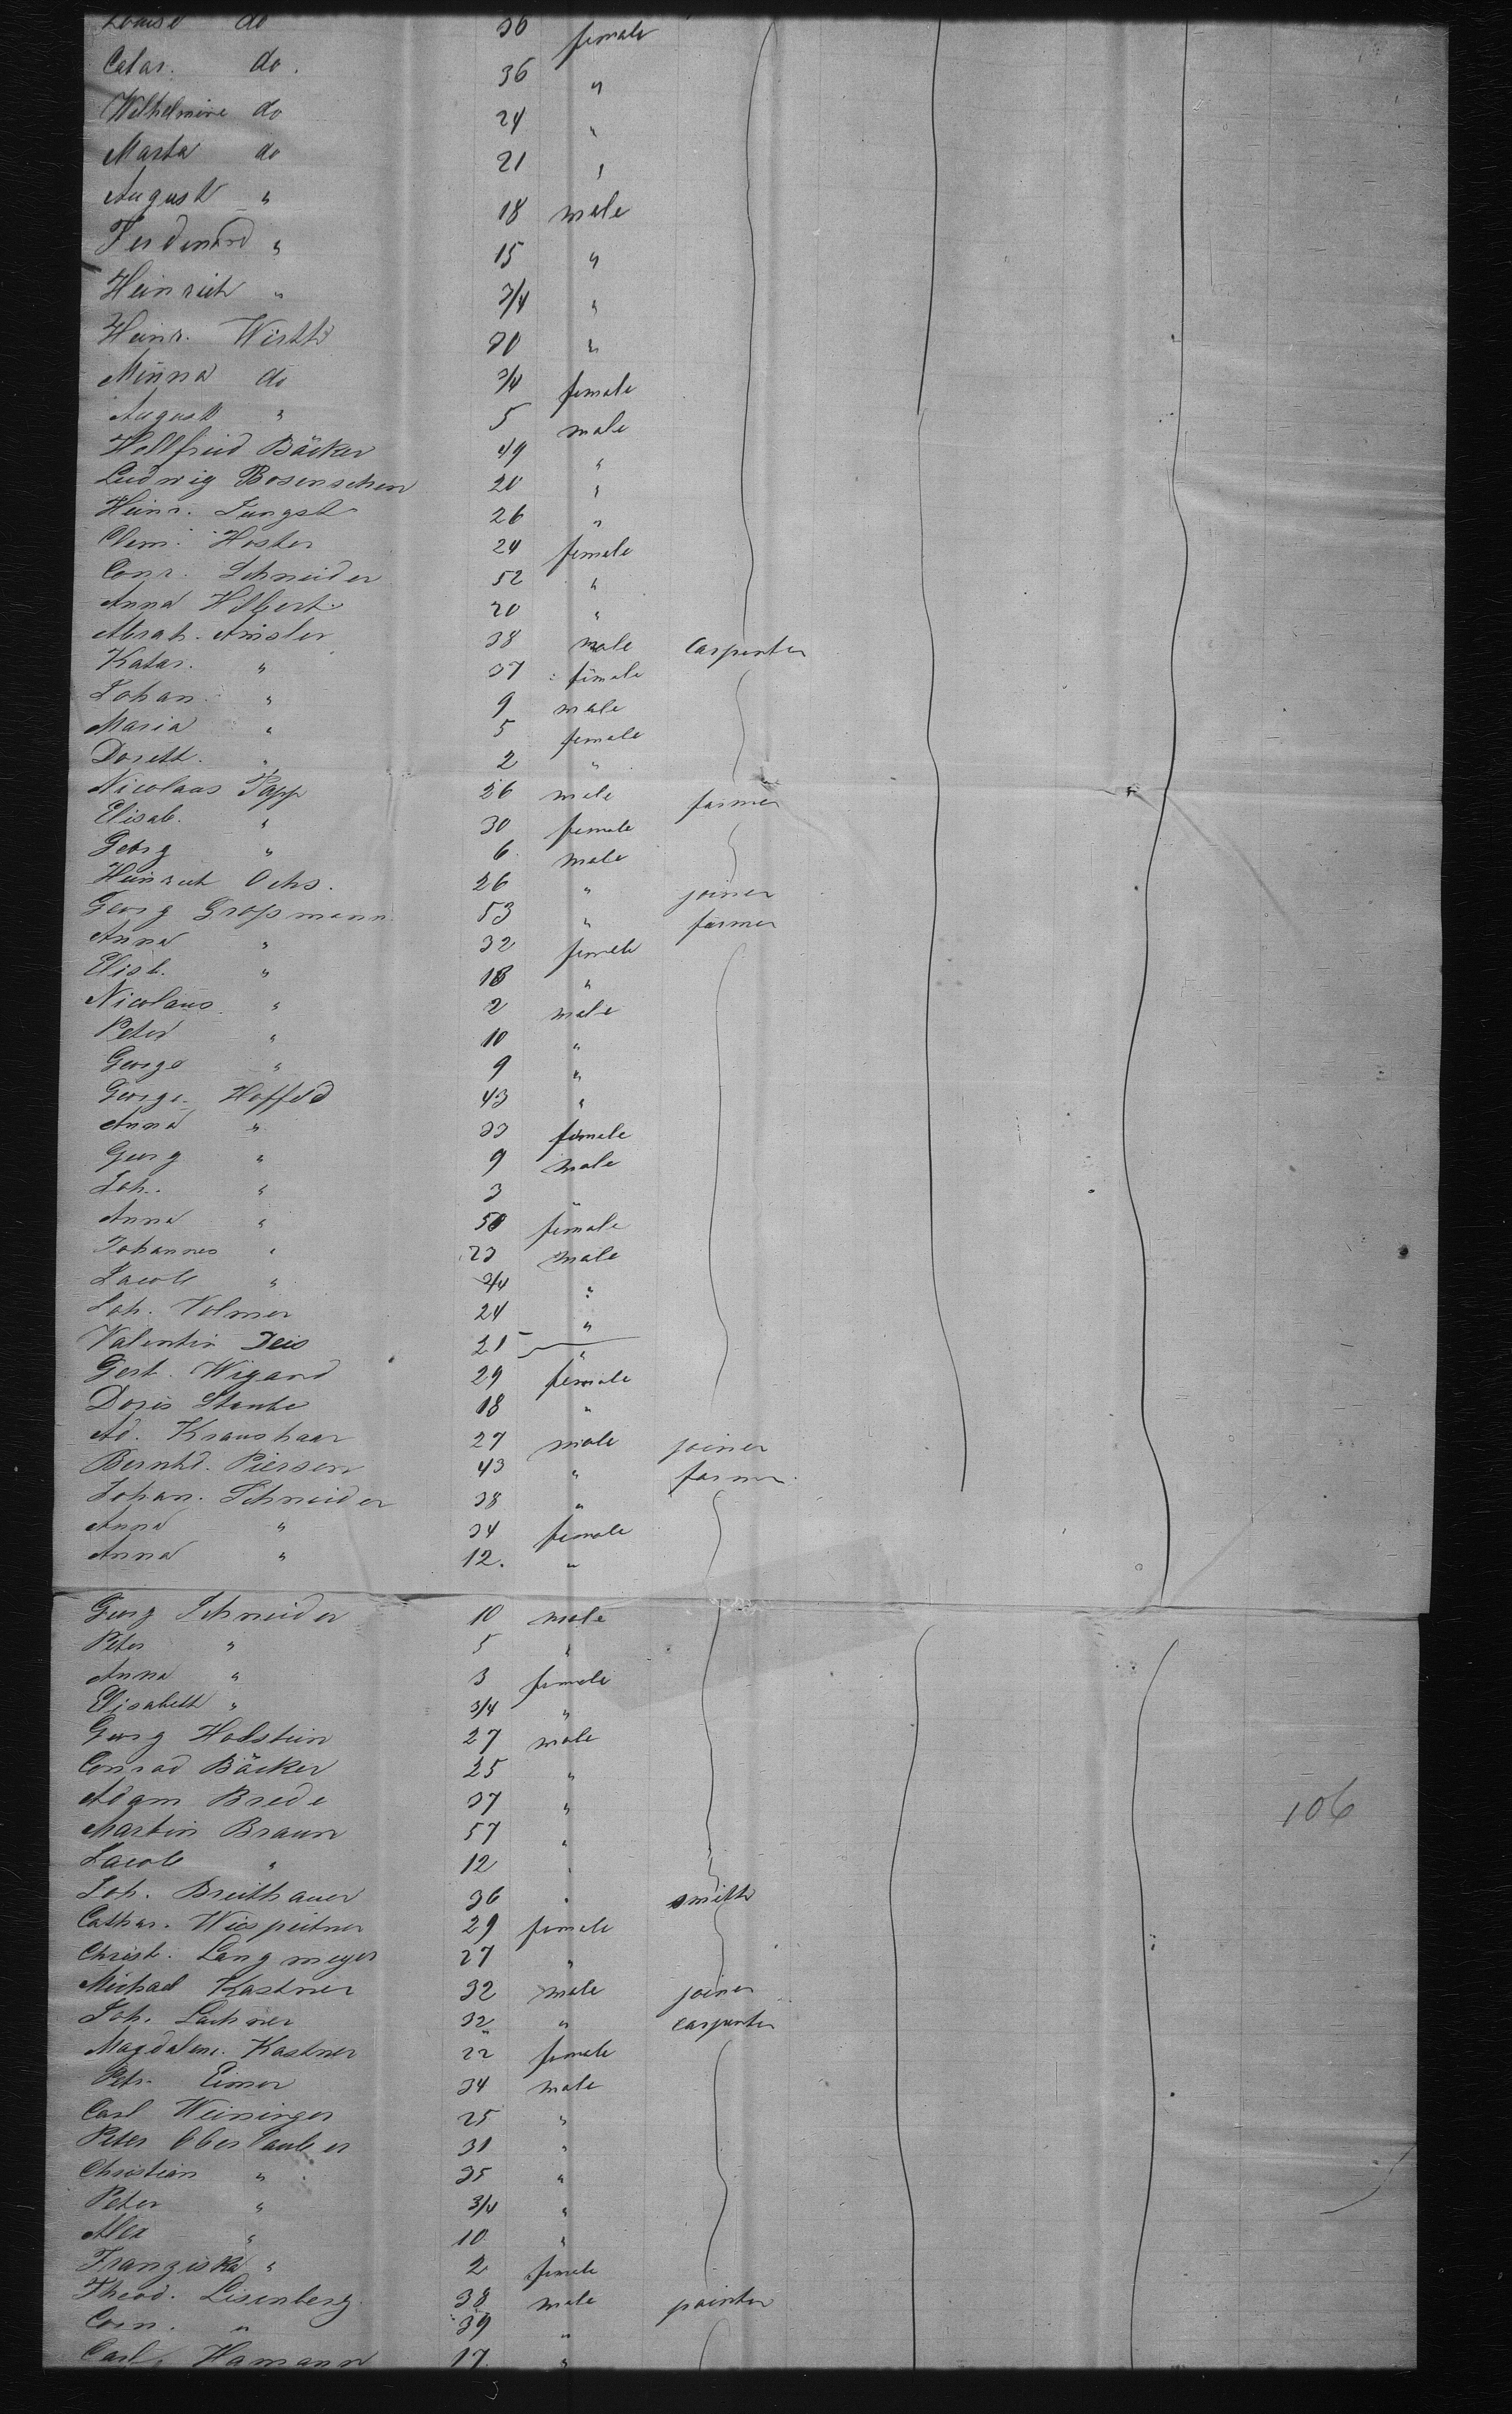 Louise do 36 female
Catar. do. 36 "
Wilhelmine do 24 "
Marta do 21 "
August " 18 male
Ferdinand " 15 "
Heinrich " 3/4 "
Heinr. Wirth 30 "
Minna do 3/4 female
August " 5 male
Hellfried Bäcker 49 "
Ludwig Bosenschen 20 "
Heinr. Jungst 26 "
Clem. Hoster 24 female
Conr. Schneider 52 "
Anna Hilbert 20 "
Abrah. Amsler 38 male carpenter
Katar. " 37 female
Johan " 9 male
Maria " 5 female
Doreth. " 2 "
Nicolaus Papp 26 male farmer
Elisab. " 30 female
Georg " 6 male
Heinrich Ochs. 26 " joiner
Georg Großmann 53 " farmer
Anna " 32 female
Elisb. " 18 "
Nicolaus " 2 male
Peter " 10 "
George " 9 "
George Hoffeld 43 "
Anna " 33 female
Georg " 9 male
Joh. " 3 "
Anna " 50 female
Johannes " 23 male
Jacob " 3/4 "
Joh. Volmer 24 "
Valentin Deis 21 "
Gert. Wigand 29 female
Doris Staube 18 "
Ad. Kraushaar 27 male joiner
Bernhd. Pierson 43 " farmer
Johan. Schneider 38 "
Anna " 34 female
Anna " 12. "
Georg Schneider 10 male
Peter " 5 "
Anna " 3 female
Elisabeth " 3/4 "
Georg Holstein 27 male
Conrad Bäcker 25 "
Adam Brede 37 "
Martin Braun 57 "
106
Jacob " 12 "
Joh. Breithauer 36 " smith
Cathar. Wiespeitner 29 female
Christ. Langmeyer 27 "
Michael Kastner 32 male joiner
Joh. Lachner 32 " carpenter
Magdalene Kastner 22 female
Petr. Eimer 34 male
Carl Weininger 25 "
Peter Oberlauber 31 "
Christian " 35 "
Peter " 3/4 "
Alex " 10 "
Franziska " 2 female
Theod. Lisenberg 38 male painter
Corn. " 39 "
Carl Hamann 17 "